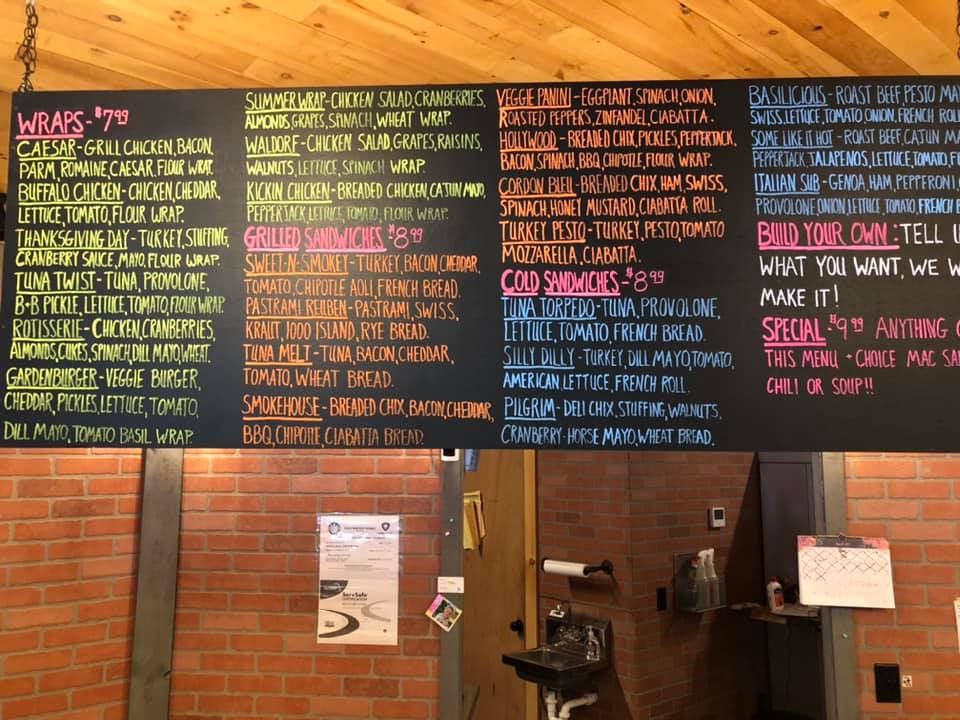 WRAPS - $7.99
CAESAR - GRILL CHICKEN, BACON,
PARM, ROMAINE, CAESAR, FLOUR WRAP.
BUFFALO CHICKEN - CHICKEN, CHEDDAR,
LETTUCE, TOMATO, FLOUR WRAP.
THANKSGIVING DAY - TURKEY, STUFFING,
CRANBERRY SAUCE, MAYO, FLOUR WRAP.
TUNA TWIST - TUNA, PROVOLONE,
B+B PICKLE, LETTUCE, TOMATO, FLOUR WRAP.
ROTISSERIE - CHICKEN, CRANBERRIES,
ALMONDS, CUKES, SPINACH, DILL MAYO, WHEAT.
GARDENBURGER - VEGGIE BURGER,
CHEDDAR, PICKLES, LETTUCE, TOMATO,
DILL MAYO, TOMATO BASIL WRAP.
SUMMER WRAP - CHICKEN SALAD, CRANBERRIES,
ALMONDS, GRAPES, SPINACH, WHEAT WRAP.
WALDORF - CHICKEN SALAD, GRAPES, RAISINS,
WALNUTS, LETTUCE, SPINACH WRAP.
KICKIN CHICKEN - BREADED CHICKEN CAJUN MAYO,
PEPPERJACK, LETTUCE, TOMATO, FLOUR WRAP.
GRILLED SANDWICHES - $8.99
SWEET-N-SMOKEY - TURKEY, BACON, CHEDDAR,
TOMATO, CHIPOTLE AOLI, FRENCH BREAD.
PASTRAMI REUBEN - PASTRAMI, SWISS,
KRAUT, 1000 ISLAND, RYE BREAD.
TUNA MELT - TUNA, BACON, CHEDDAR,
TOMATO, WHEAT BREAD.
SMOKEHOUSE - BREADED CHIX, BACON, CHEDDAR,
BBQ, CHIPOTLE, CIABATTA BREAD.
VEGGIE PANINI - EGGPLANT, SPINACH, ONION,
ROASTED PEPPERS, ZINFANDEL, CIABATTA.
HOLLYWOOD - BREADED CHIX, PICKLES, PEPPERJACK,
BACON, SPINACH, BBQ, CHIPOTLE, FLOUR WRAP.
CORDON BLEU - BREADED CHIX, HAM, SWISS,
SPINACH, HONEY MUSTARD, CIABATTA ROLL.
TURKEY PESTO - TURKEY, PESTO, TOMATO
MOZZARELLA, CIABATTA.
COLD SANDWICHES - $8.99
TUNA TORPEDO - TUNA, PROVOLONE,
LETTUCE, TOMATO, FRENCH BREAD.
SILLY DILLY - TURKEY, DILL MAYO, TOMATO,
AMERICAN, LETTUCE, FRENCH ROLL.
PILGRIM - DELI CHIX, STUFFING, WALNUTS,
CRANBERRY-HORSE MAYO, WHEAT BREAD.
BASILICIOUS - ROAST BEEF, PESTO MA
SWISS, LETTUCE, TOMATO, ONION, FRENCH ROLL
SOME LIKE IT HOT - ROAST BEEF, CAJUN MA
PEPPERJACK, JALAPENOS, LETTUCE, TOMATO, FR
ITALIAN SUB - GENOA, HAM, PEPPERONI,
PROVOLONE, ONION, LETTUCE, TOMATO, FRENCH B
BUILD YOUR OWN : TELL U
WHAT YOU WANT, WE W
MAKE IT!
SPECIAL $9.99 ANYTHING O
THIS MENU + CHOICE MAC SA
CHILI OR SOUP!!
ServSafe
CERTIFICATION